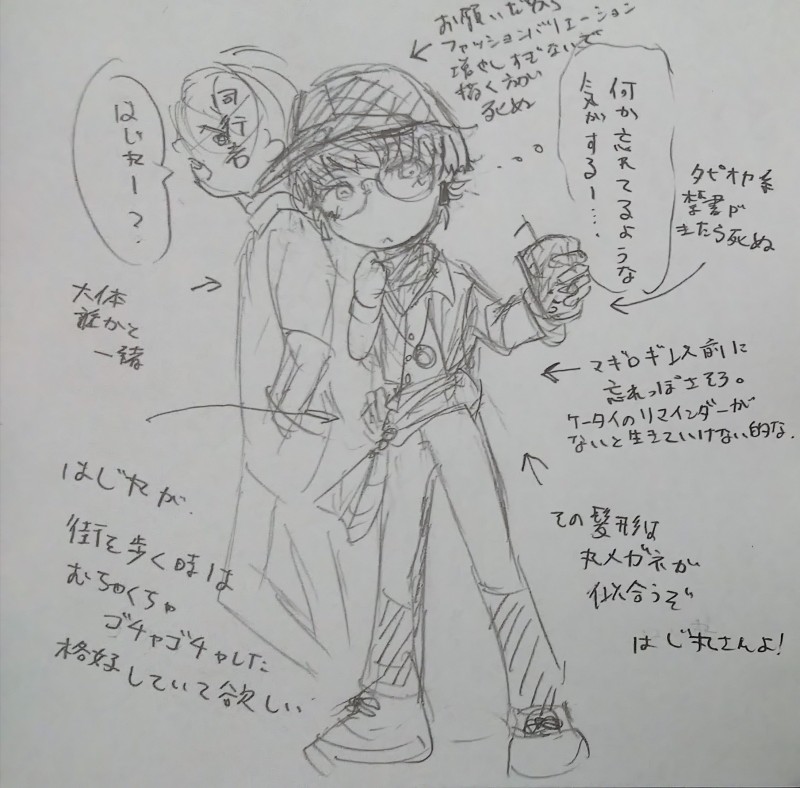 お願いだから
ファッションバリエーション
増やしすぎないで
描く方が
死ぬ
何か忘れてるような
気がするー…
タピオカ系
禁書が
きたら死ぬ
同行者
はじめー?
大体
誰かと
一緒
マギロギ
前に
忘れっぽさそう。
ケータイのリマインダーが
ないと生きていけない的な.
その髪形は
丸メガネが
似合うぞ
さんよ!
街を歩く時は
むちゃくちゃ
ゴチャゴチャした
格好していて欲しい